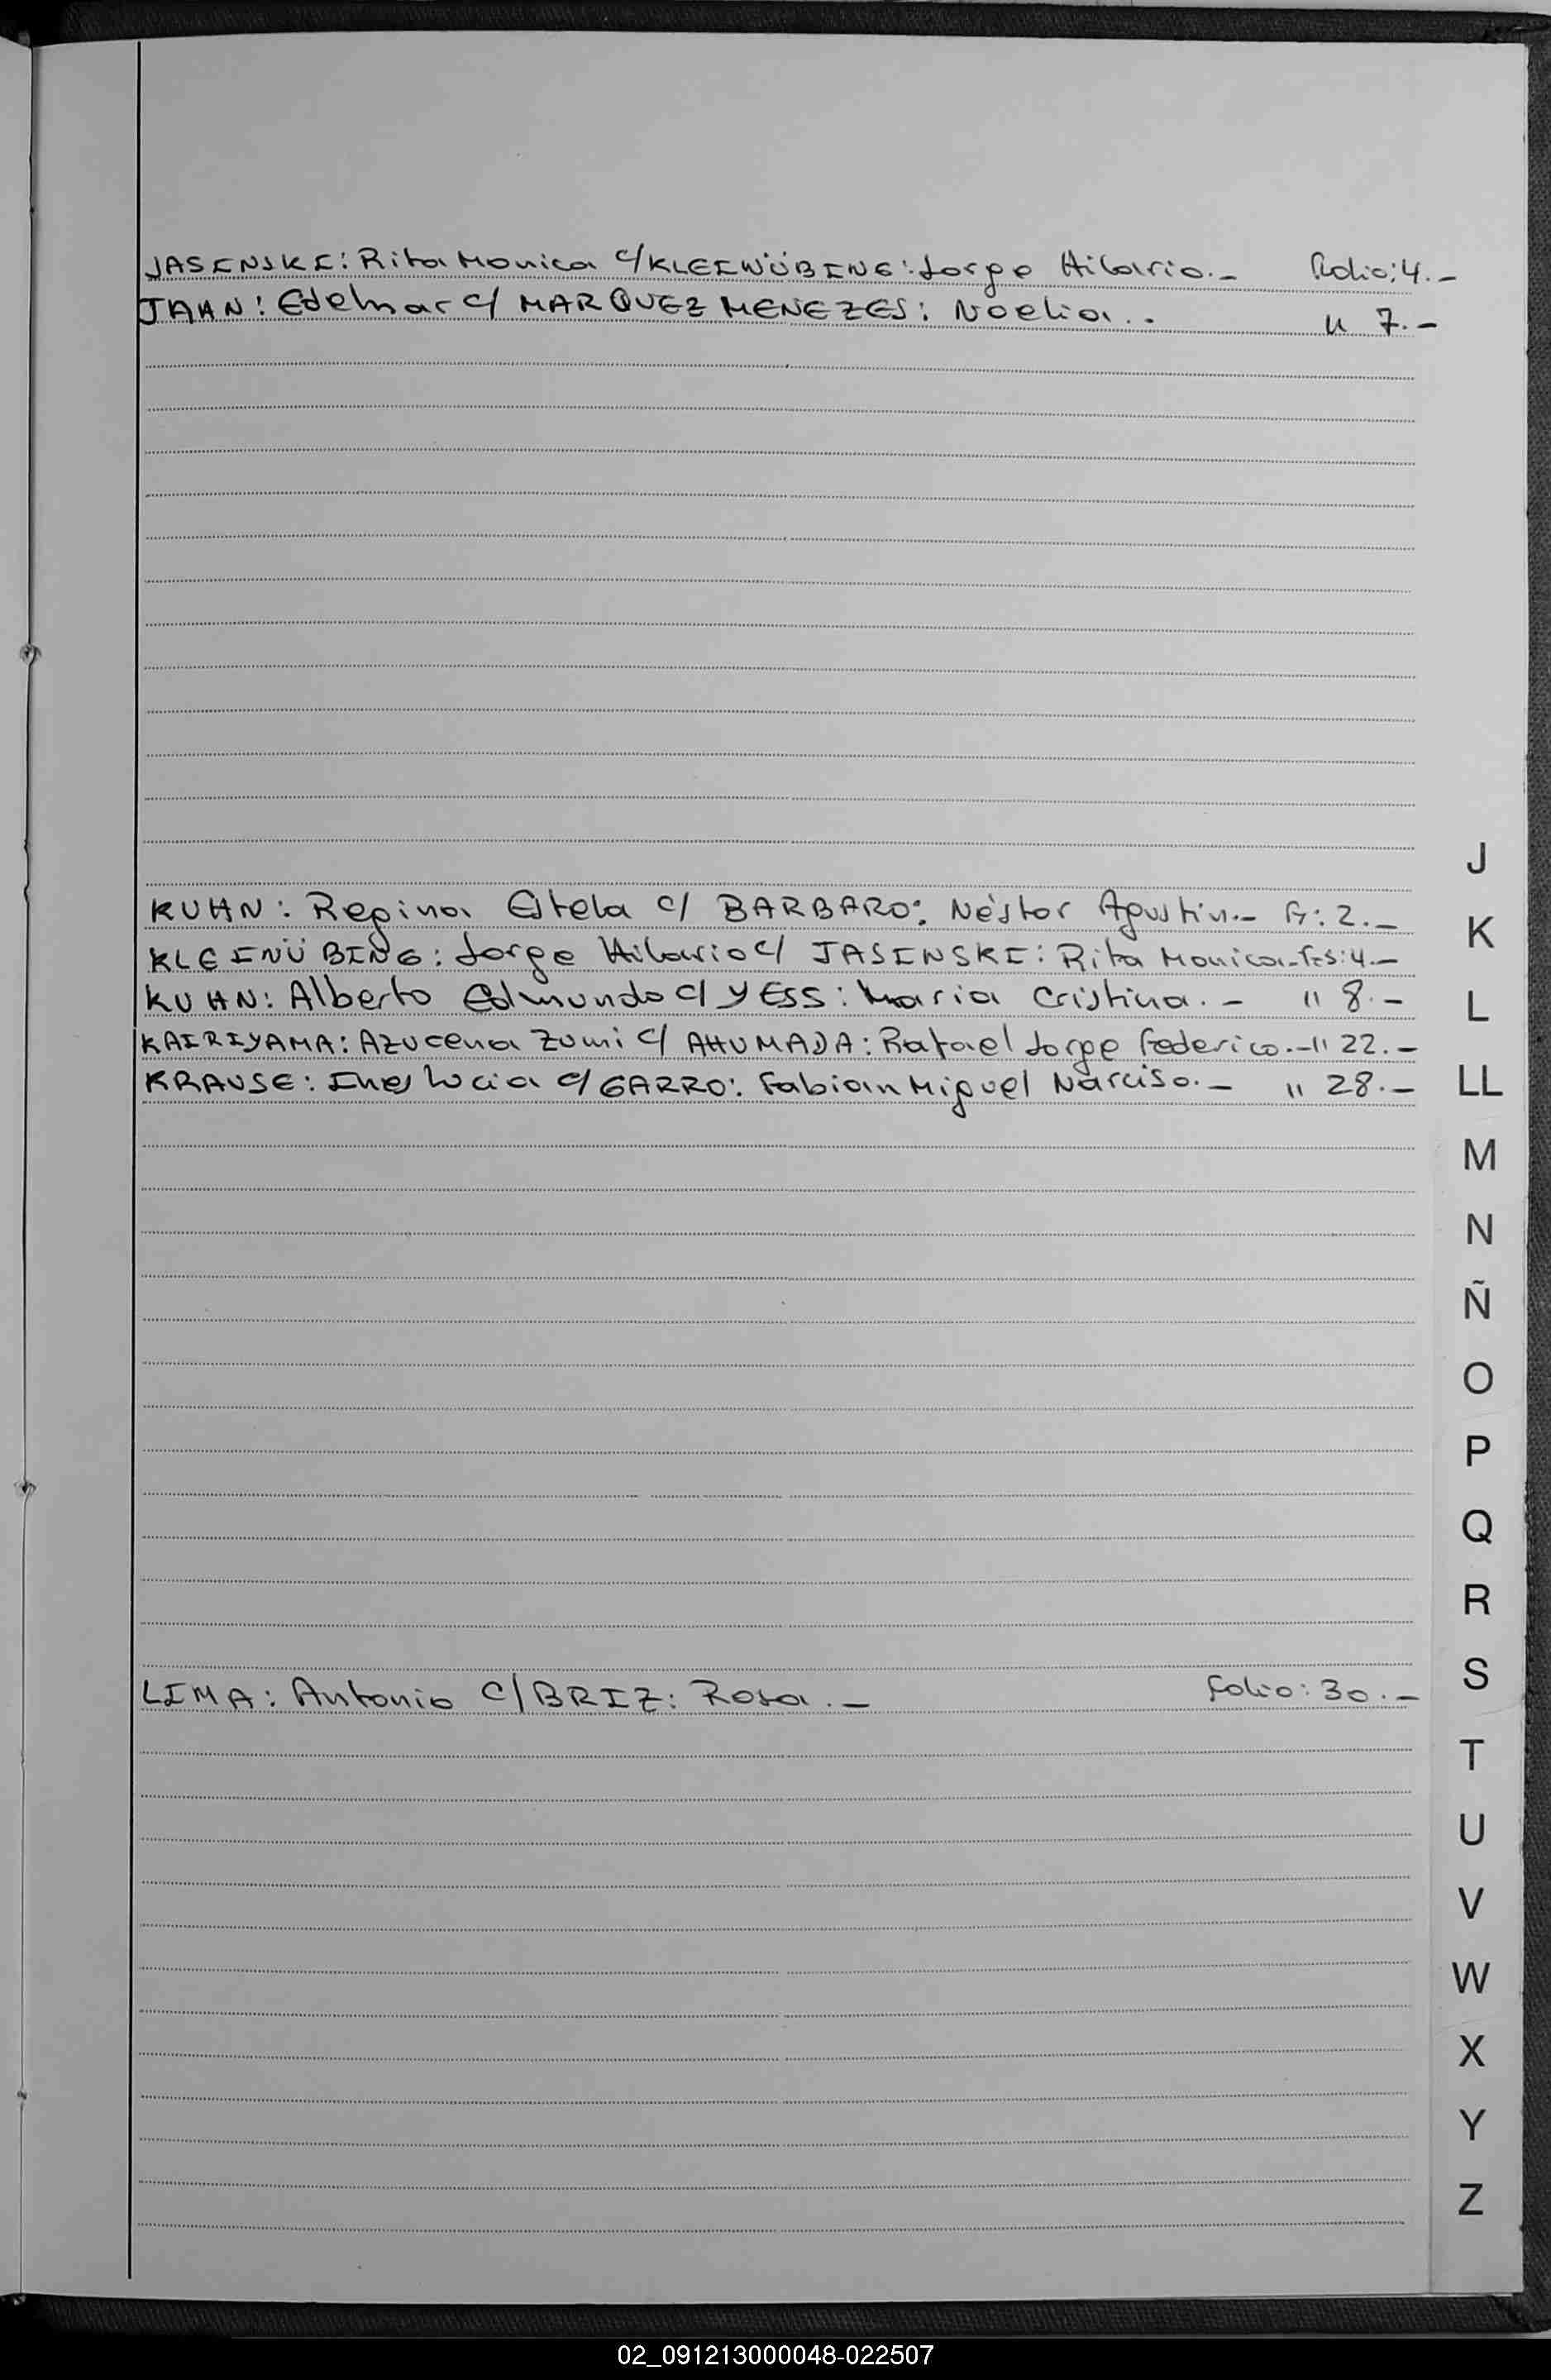 JASINSKI: Rita Monica c/ KLEINÜBING: Jorge Hilario.- Folio: 4.-
JAHN: Edelmar c/ MARQUEZ MENEZES: Noelia.. " 7.-
J
KUHN: Regina Estela c/ BARBARO: Néstor Agustin.- Fº: 2.-
K
KLEINÜBING: Jorge Hilario c/ JASINSKI: Rita Monica.- Fº: 4.-
KUHN: Alberto Edmundo c/ YESS: Maria Cristina.- " 8.-
L
KAIRIYAMA: Azucena Zumi c/ AHUMADA: Rafael Jorge Federico.- " 22.-
KRAUSE: Ines Lucia c/ GARRO: Fabian Miguel Narciso.- " 28.-
LL
M
N
Ñ
O
P
Q
R
S
LIMA: Antonio c/ BRIZ: Rosa.- Folio: 30.-
T
U
V
W
X
Y
Z
02_091213000048-022507